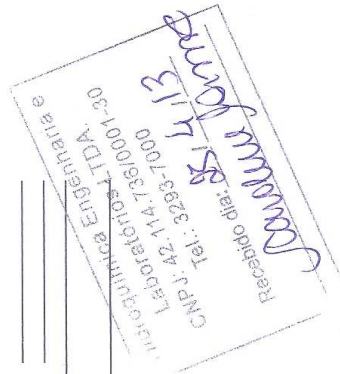 Hidroquímica Engenharia e
Laboratórios LTDA.
CNPJ: 42.114.736/0001-30
Tel.: 3293-7000
Recebido dia: 25/4/13